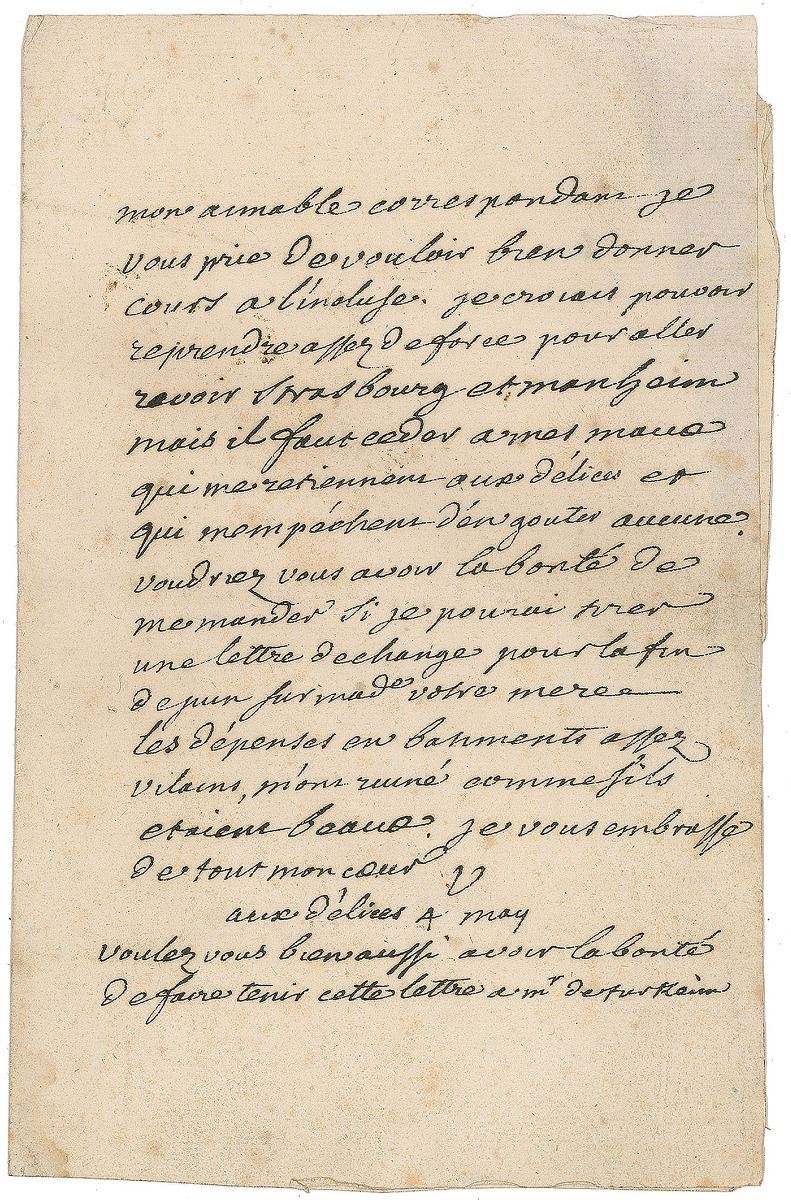 mon aimable correspondant je
vous prie de vouloir bien donner
cours a l'incluse. je croiais pouvoir
reprendre assez de force pour aller
revoir strasbourg et manheim
mais il faut ceder a mes maux
qui me retiennent aux délices et
qui mempéchent d'en gouter aucune.
voudriez vous avoir la bonté de
me mander si je pourai tirer
une lettre dechange pour la fin
de juin sur made votre mere
les dépenses en batiments assez
vilains, m'ont ruiné comme sils
etaient beaux. je vous embrasse
de tout mon cœur V
aux délices 4 may
voulez vous bien aussi avoir la bonté
de faire tenir cette lettre a mr de turkeim